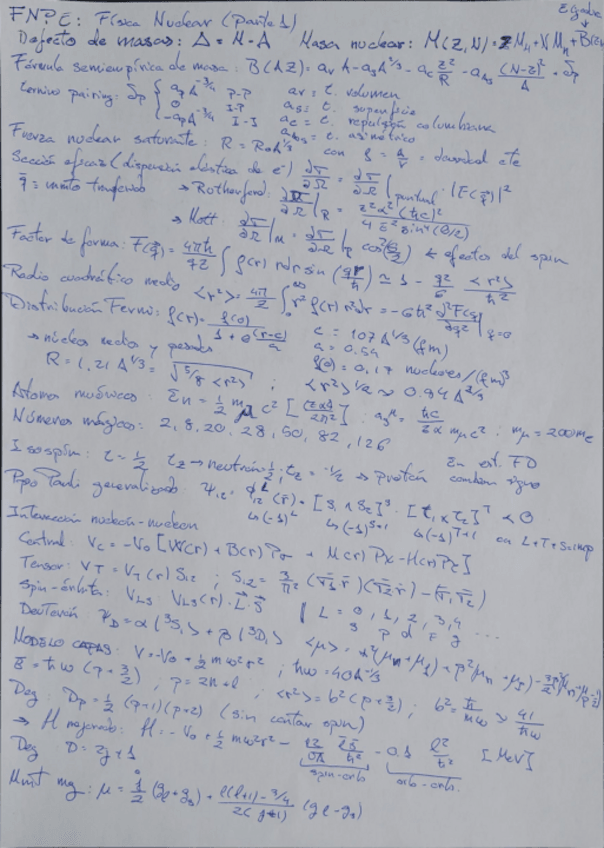 FNPE: Física Nuclear (Parte 1)
Defecto de masas: Δ = M - A Masa nuclear: M(Z,N) = Z M_H + N M_n + B(
Fórmula semiempírica de masa: B(A,Z) = a_v A - a_s A^2/3 - a_c Z²/R - a_As (N-Z)²/A + δp
término pairing: δp { a_p A^-3/4 P-P
0 I-P
-a_p A^-3/4 I-I
a_v = t. volumen
a_s = t. superficie
a_c = t. repulsión columbiana
a_As = t. asimétrico
Fuerza nuclear saturante: R = R_0 A^1/3 con ρ = A/V = densidad cte
Sección eficaz (dispersión elástica de e⁻) ∂σ/∂Ω = ∂σ/∂Ω|puntual · |F(q)|²
→ Rutherford: ∂σ/∂Ω|_R = Z²α²(ħc)²/4E² sin⁴(θ/2)
→ Mott: ∂σ/∂Ω|_M = ∂σ/∂Ω|_R cos²(θ/2) ← efectos del spin
Factor de forma: F(q) = 4πħ/qZ ∫ ρ(r) r dr sin(qr/ħ) ≃ 1 - q²/6 <r²>/ħ²
Radio cuadrático medio <r²> = 4π/Z ∫_0^∞ r² ρ(r) r² dr = -6ħ² ∂²F(q)/∂q²|q=0
Distribución Fermi: ρ(r) = ρ(0)/1 + e^(r-c)/a c = 1.07 A^1/3 (fm)
a = 0.54
→ núcleos medios y pesados ρ(0) = 0.17 nucleones/(fm)³
R = 1.21 A^1/3 = √5/3 <r²> ; <r²>^1/2 ≈ 0.94 A^1/3
Átomos muónicos: E_n = 1/2 m_μ c² [(Zα)²/n²] ; a_3^μ = ħc/Zα m_μ c² ; m_μ = 200 m_e
Números mágicos: 2, 8, 20, 28, 50, 82, 126
Isospin: t = 1/2 t_z → neutrón = 1/2 ; t_z = -1/2 → protón
En ext. FP
cambian signo
Ppo Pauli generalizado: Ψ_12 = φ_12^L (r) · [s_1 ∧ s_2]^S · [t_1 ∧ t_2]^T < 0
↳(-1)^L ↳(-1)^S+1 ↳(-1)^T+1 con L+T+S=imp
Interacción nucleón-nucleón
Central: V_c = -V_0 [W(r) + B(r) Pσ + M(r) Px - H(r) Pτ]
Tensor: V_T = V_T(r) S_12 ; S_12 = 3/r² (σ_1 r)(σ_2 r) - (σ_1 σ_2)
Spin-órbita: V_LS V_LS(r) · L·S | L = 0, 1, 2, 3, 4 ...
s p d f g
Deuterón Ψ_D = α(³S_1) + β(³D_1)
MODELO CAPAS: V = -V_0 + 1/2 mω²r² ; ħω = 40 A^-1/3
E = ħω (p + 3/2) ; p = 2n+l ; <r²> = b²(p + 3/2) ; b² = ħ/mω → 41/ħω
Deg: D_p = 1/2 (p+1)(p+2) (sin contar spin)
→ H mejorado: H = -V_0 + 1/2 mω²r² - l·s/ħ² - 0.1 l²/ħ² [MeV]
spin-orb orb-orb.
Deg D = 2j + 1
Mmt mg: μ = 1/2 (g_l + g_s) + l(l+1) - 3/4 / 2(j+1) (g_l - g_s)